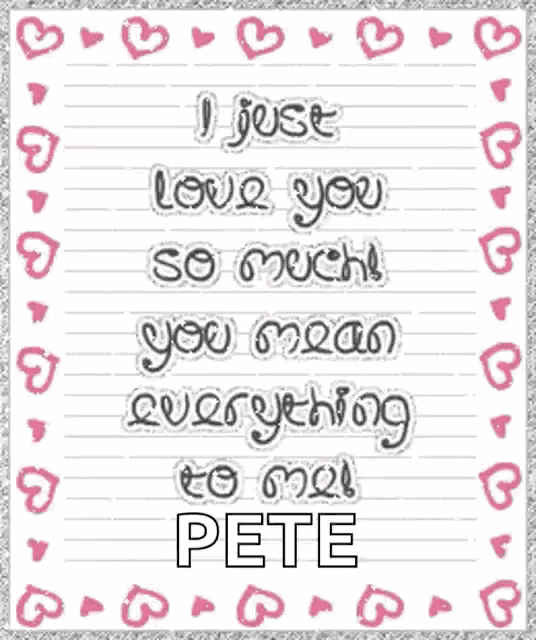 I just
love you
so much!
you mean
everything
to me!
PETE